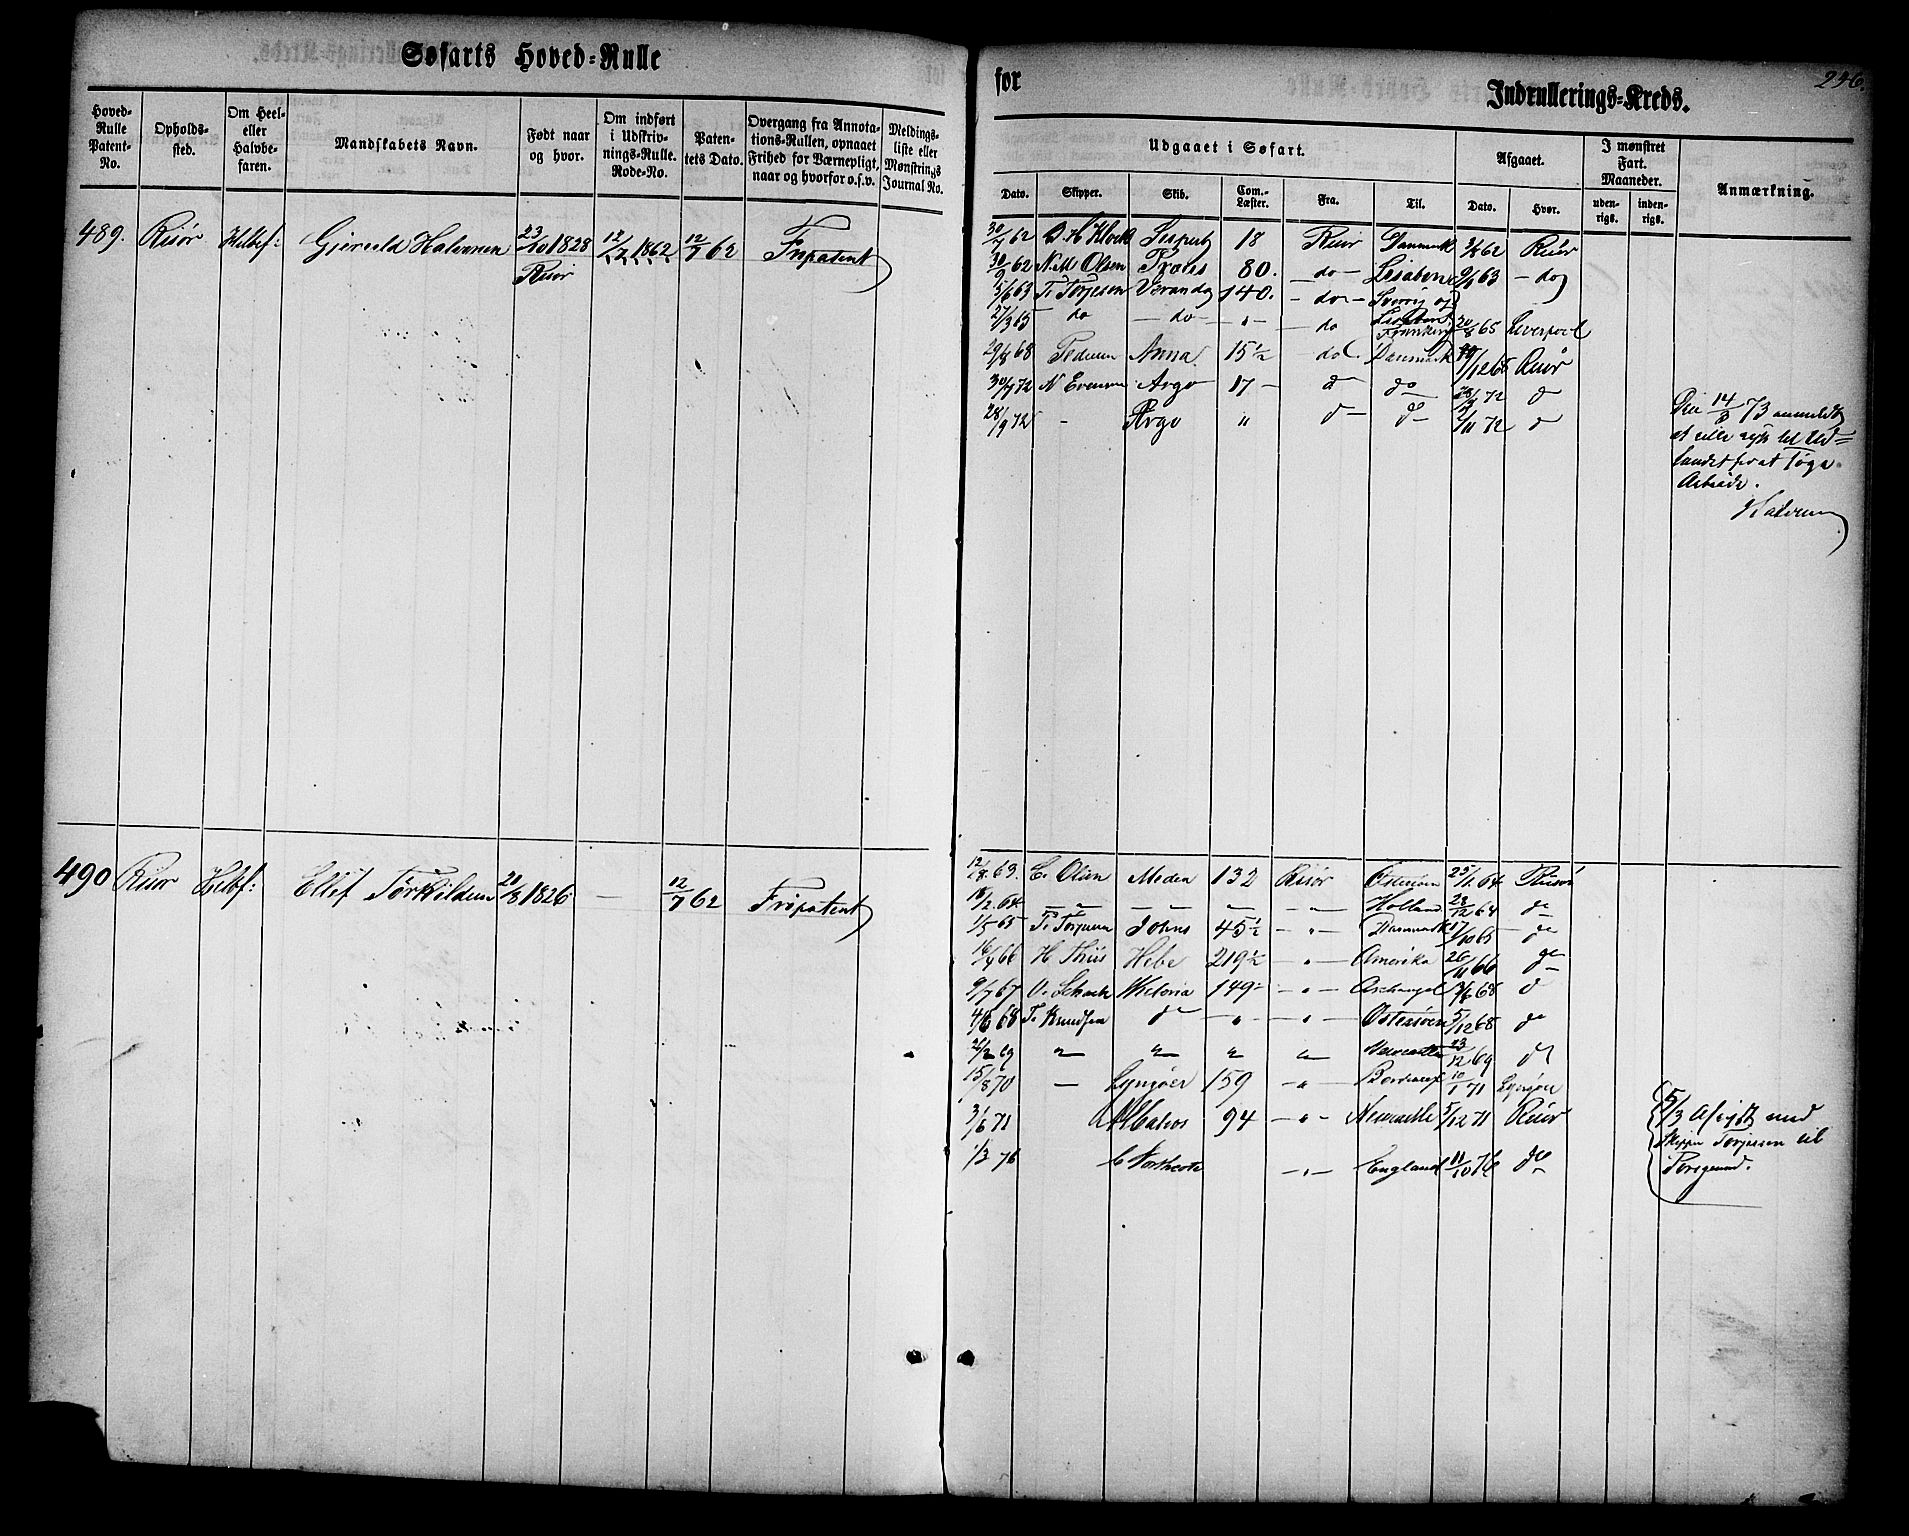 Søfarts Hoved=Rulle
for
Indrullerings-Kreds.
246.
Hoved-Rulle Patent-No.
Opholds-sted.
Om Heel- eller Halvbe-faren.
Mandskabets Navn.
Født naar og hvor.
Om indført i Udskriv-nings-Rulle. Rode-No.
Paten-tets Dato.
Overgang fra Annota-tions-Rullen, opnaaet Frihed for Værnepligt, naar og hvorfor o.s.v.
Meldings-liste eller Mønstrings Journal No.
Udgaaet i Søfart.
Afgaaet.
I mønstret Fart. Maaneder.
Anmærkning.
Dato.
Skipper.
Skib.
Com.-Læster.
Fra.
Til.
Dato.
Hvor.
uden-rigs.
inden-rigs.
489. Risør Helbef: Gjeruld Halvorsen 23/10 1828 12/7 1862 12/7 62 Fripatent
Risør
30/7 62 18 Risør Danmark 62 Risør
30/9 62 N. M Olsen Traws 80. - do - Lisabon 63 - do
63 T. Torjesen Veranda 140. - do - Sverrig og
27/3 65 do - do - " - do Frankrig 20/8 65 Liverpool
29/8 68 Pedersen Anna 15 1/2 - do Danmark Risør
30/7 72 N Evensen Argo 17 - do do 72 do
28/9 72 - Argo " do - do 11 72 do
Den 14/3 73 anmeldt
at ville rejse til Ud=
landet for at søge
Arbeide.
Halvorsen
490 Risør Helbf: Ellef Tørkildsen 20/8 1826 - 12/7 62 Fripatent
12/8 63. E. Olsen Medea 132 Risør Østersøen 25/11 64 Risør
64 - " - - " - - " - - " - Holland 28/12 64 do
1/5 65 T. Torjesen Johns 45 1/2 - " - Danmark 17/10 65 do
16/4 66 H. Thiis Hebe 219 1/2 - " - Amerika 26/11 66 do
9/7 67 O. Schack Victoria 149 - " - Archangel 68 do
4/6 68 T. Knudsen do - " - - " - Østersøen 5/12 68 do
2/2 69 " " " " Newcastle 23/12 69 do
15/8 70 - Lyngøer 159 - " - Bordeaux 10/1 71 Lyngøer
3/6 71 Albatros 94 - " - Newcastle 5/12 71 Risør
1/3 76 Northcote - " - England 11/10 76 do
5/3 Afsejlt med
Skipper Torjesen til
Porsgrund.